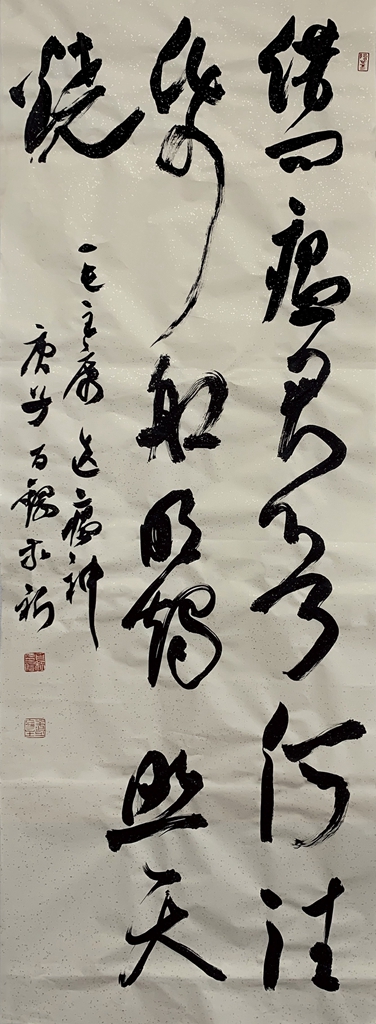 借問瘟君欲何往
紙船明燭照天
燒
毛主席送瘟神
庚子